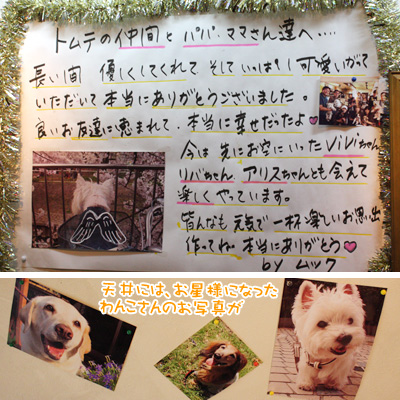 トムテの仲間とパパ・ママさん達へ・・・・
長い間 優しくしてくれて そして いっぱい 可愛いがって
いただいて 本当にありがとうございました。
良いお友達に恵まれて、本当に幸せだったよ
今は 先にお空にいった ViViちゃん
リバちゃん、アリスちゃんとも会えて
楽しくやっています。
皆んなも 元気で一杯楽しいお思い出
作ってね 本当にありがとう
by ムック
天井には、お星様になった
わんこさんのお写真が